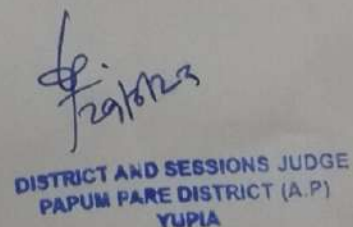 29/6/23
DISTRICT AND SESSIONS JUDGE
PAPUM PARE DISTRICT (A.P)
YUPIA